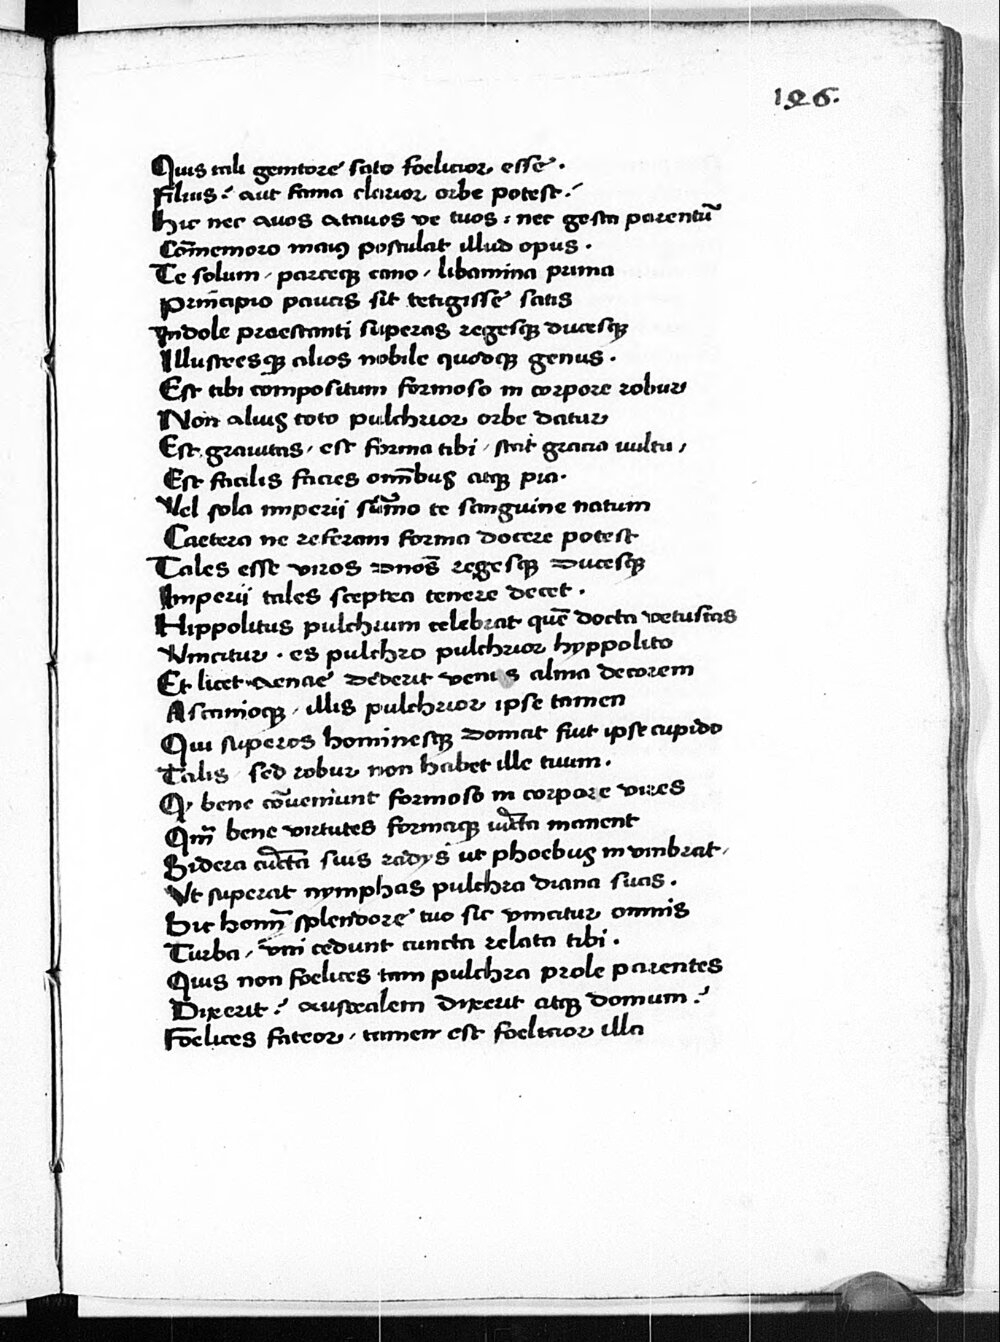 126.
Quis tali genitore sato foelicior esse.
Filius? aut fama clarior orbe potest?
Hic nec auos atauos ve tuos: nec gesta parentũ
Cõmemoro maiꝰ postulat illud opus.
Te solum, parceqꝫ cano, libamina prima
Principio paucis sit tetigisse satis
Indole praestanti superas regesqꝫ ducesqꝫ
Illustresqꝫ alios nobile quodqꝫ genus.
Est tibi compositum formoso in corpore robur
Non alius toto pulchrior orbe datur
Est grauitas, est forma tibi, stat gracia uultu,
Est facilis facies omĩbus atqꝫ pia.
Vel sola imperii sũmo te sanguine natum
Caetera ne referam forma docere potest
Tales esse viros dños regesqꝫ ducesqꝫ
Imperii tales sceptra tenere decet.
Hippolitus pulchrum celebrat quẽ docta vetustas
Vincitur. es pulchro pulchrior hyppolito
Et licet aenae dederit venus alma decorem
Ascanioqꝫ, illis pulchrior ipse tamen
Qui superos hominesqꝫ domat fiut ipse cupido
Talis, sed robur non habet ille tuum.
Q̃ bene cõueniunt formoso in corpore vires
Qm̃ bene virtutes formaqꝫ iũcta manent
Sidera cũcta suis radijs ut phoebus inumbrat,
Vt superat nymphas pulchra diana suas.
Sic homĩ splendore tuo sic vincitur omnis
Turba, vni cedunt cuncta relata tibi.
Quis non foelices tam pulchra prole parentes
Dixerit? australem dixerit atqꝫ domum?
Foelices fateor, tamen est foelicior illa